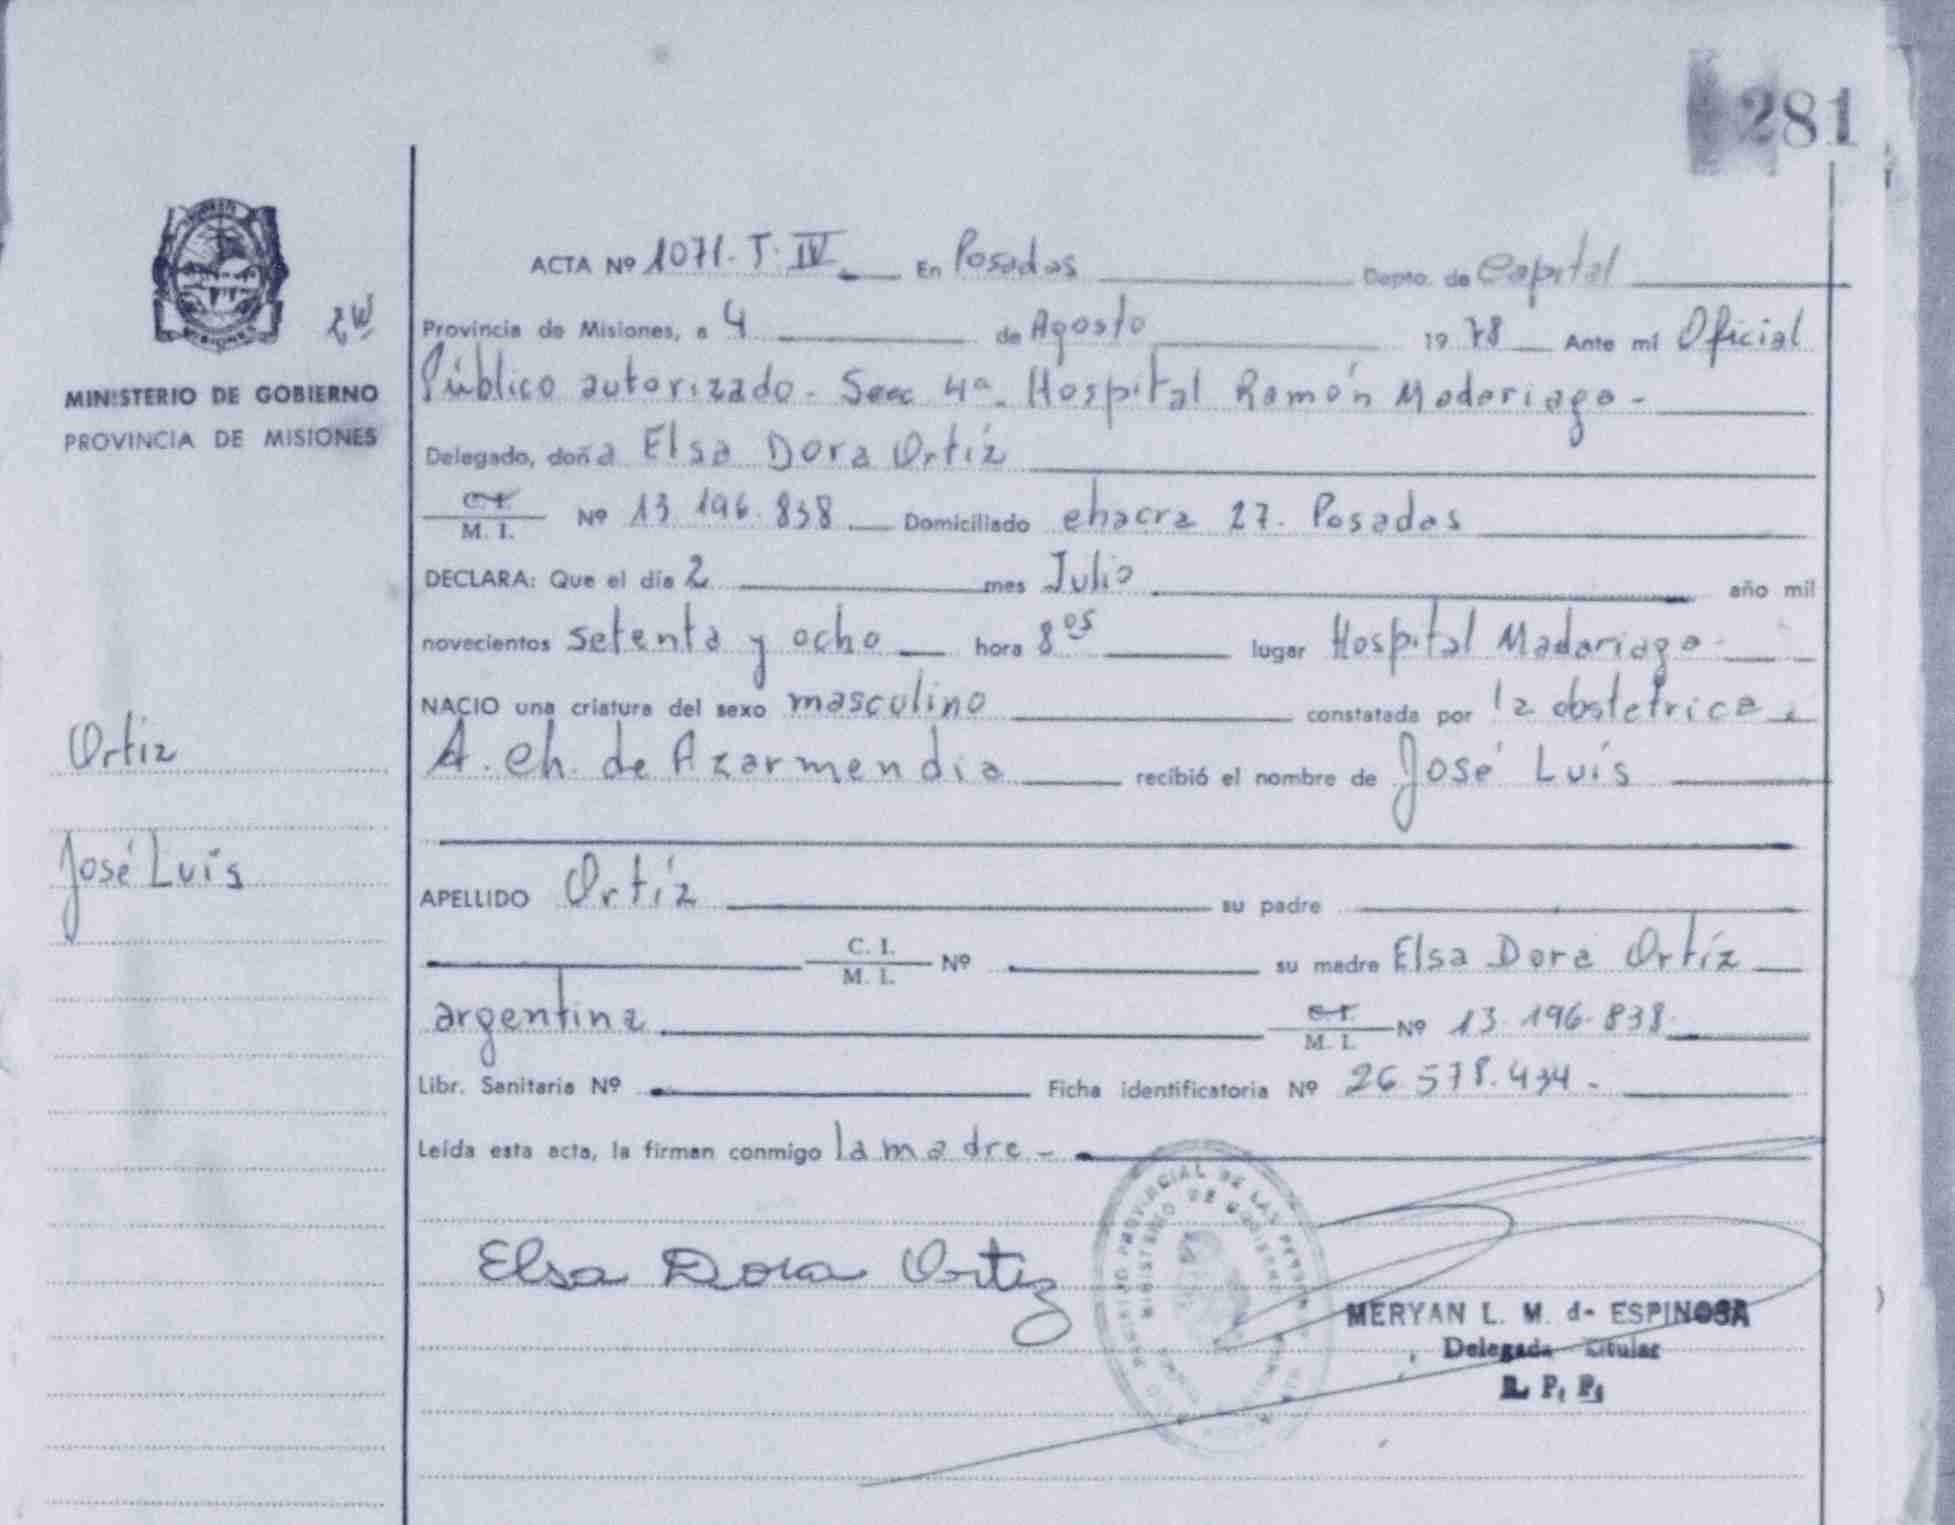 281
ACTA Nº 1071. T. IV En Posadas Depto. de Capital
Provincia de Misiones, a 4 de Agosto 1978 Ante mí Oficial
MINISTERIO DE GOBIERNO
PROVINCIA DE MISIONES
Público autorizado - Secc 4ª. Hospital Ramón Madariaga -
Delegado, doña Elsa Dora Ortíz
C. I.
M. I. Nº 13.196.838 Domiciliado chacra 27. Posadas
DECLARA: Que el día 2 mes Julio año mil
novecientos setenta y ocho hora 8 05 lugar Hospital Madariaga -
NACIO una criatura del sexo masculino constatada por la obstetrica
A. Ch. de Azarmendia recibió el nombre de José Luís
Ortiz
José Luis
APELLIDO Ortíz su padre
C. I.
M. I. Nº su madre Elsa Dora Ortíz
argentina C. I.
M. I. Nº 13.196.838
Libr. Sanitaria Nº Ficha identificatoria Nº 26.578.434 -
Leída esta acta, la firman conmigo la madre -
Elsa Dora Ortiz
MERYAN L. M. de ESPINOSA
Delegada Titular
R. P. P.